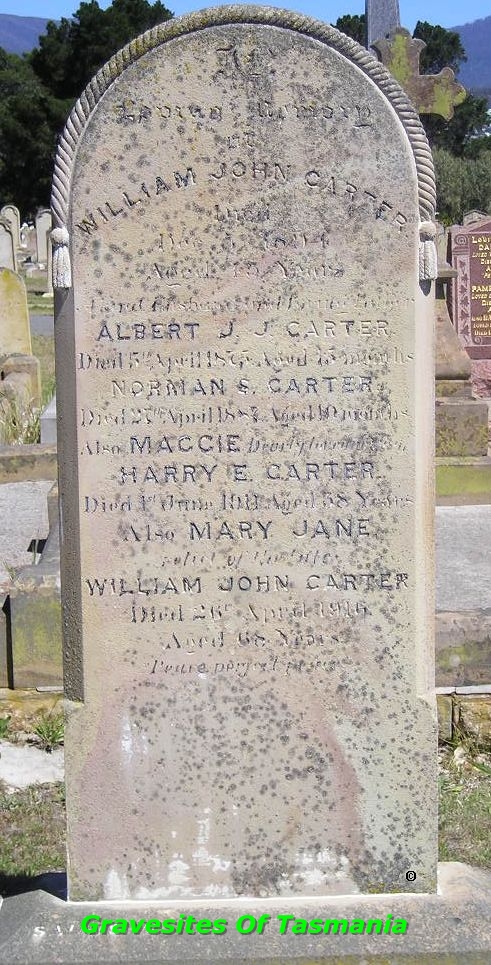 In
Loving Memory
of
WILLIAM JOHN CARTER
Died
1894
Aged Years
ALBERT J. J. CARTER
Died 5th April 1875 Aged 15 months
NORMAN S. CARTER
Died 27th April 1887 Aged 10 months
Also MAGGIE Dearly
HARRY E. CARTER
Died 1st June 1911 Aged 38 Years
Also MARY JANE
relict of the late
WILLIAM JOHN CARTER
Died 26th April 1916
Aged 68 Years
Peace perfect peace
©
Gravesites Of Tasmania